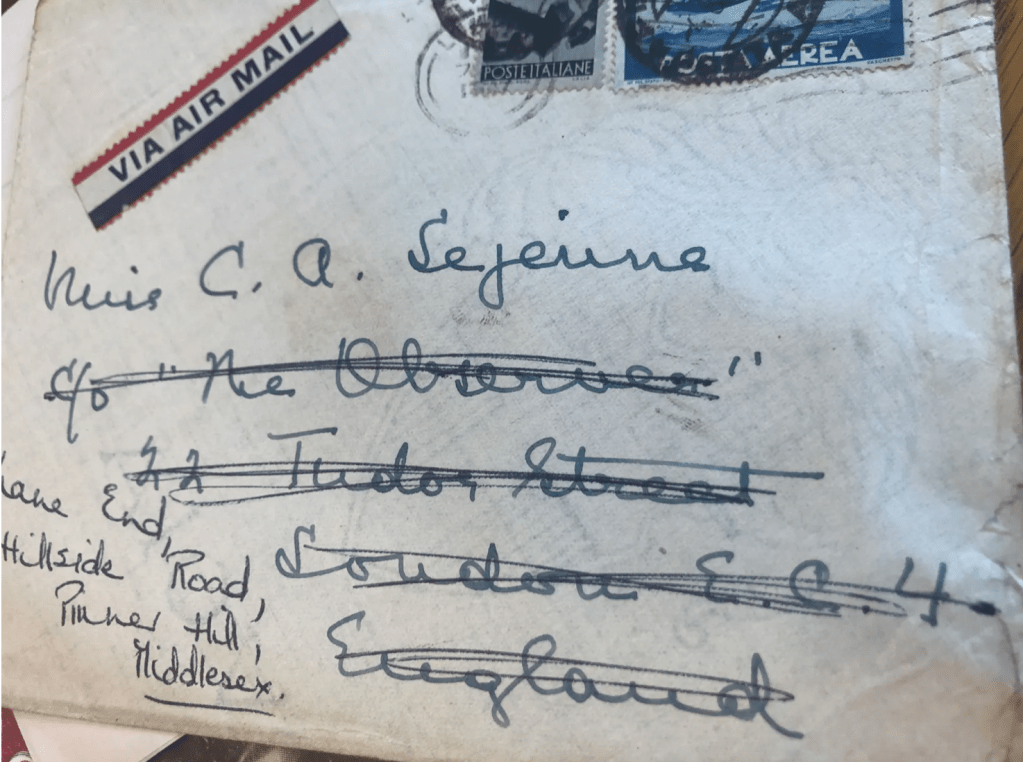 VIA AIR MAIL
POSTE ITALIANE
POSTA AEREA
Miss C. A. Lejeune
c/o "The Observer"
22 Tudor Street
London E.C.4.
England
Lane End,
Hillside Road,
Pinner Hill,
Middlesex.